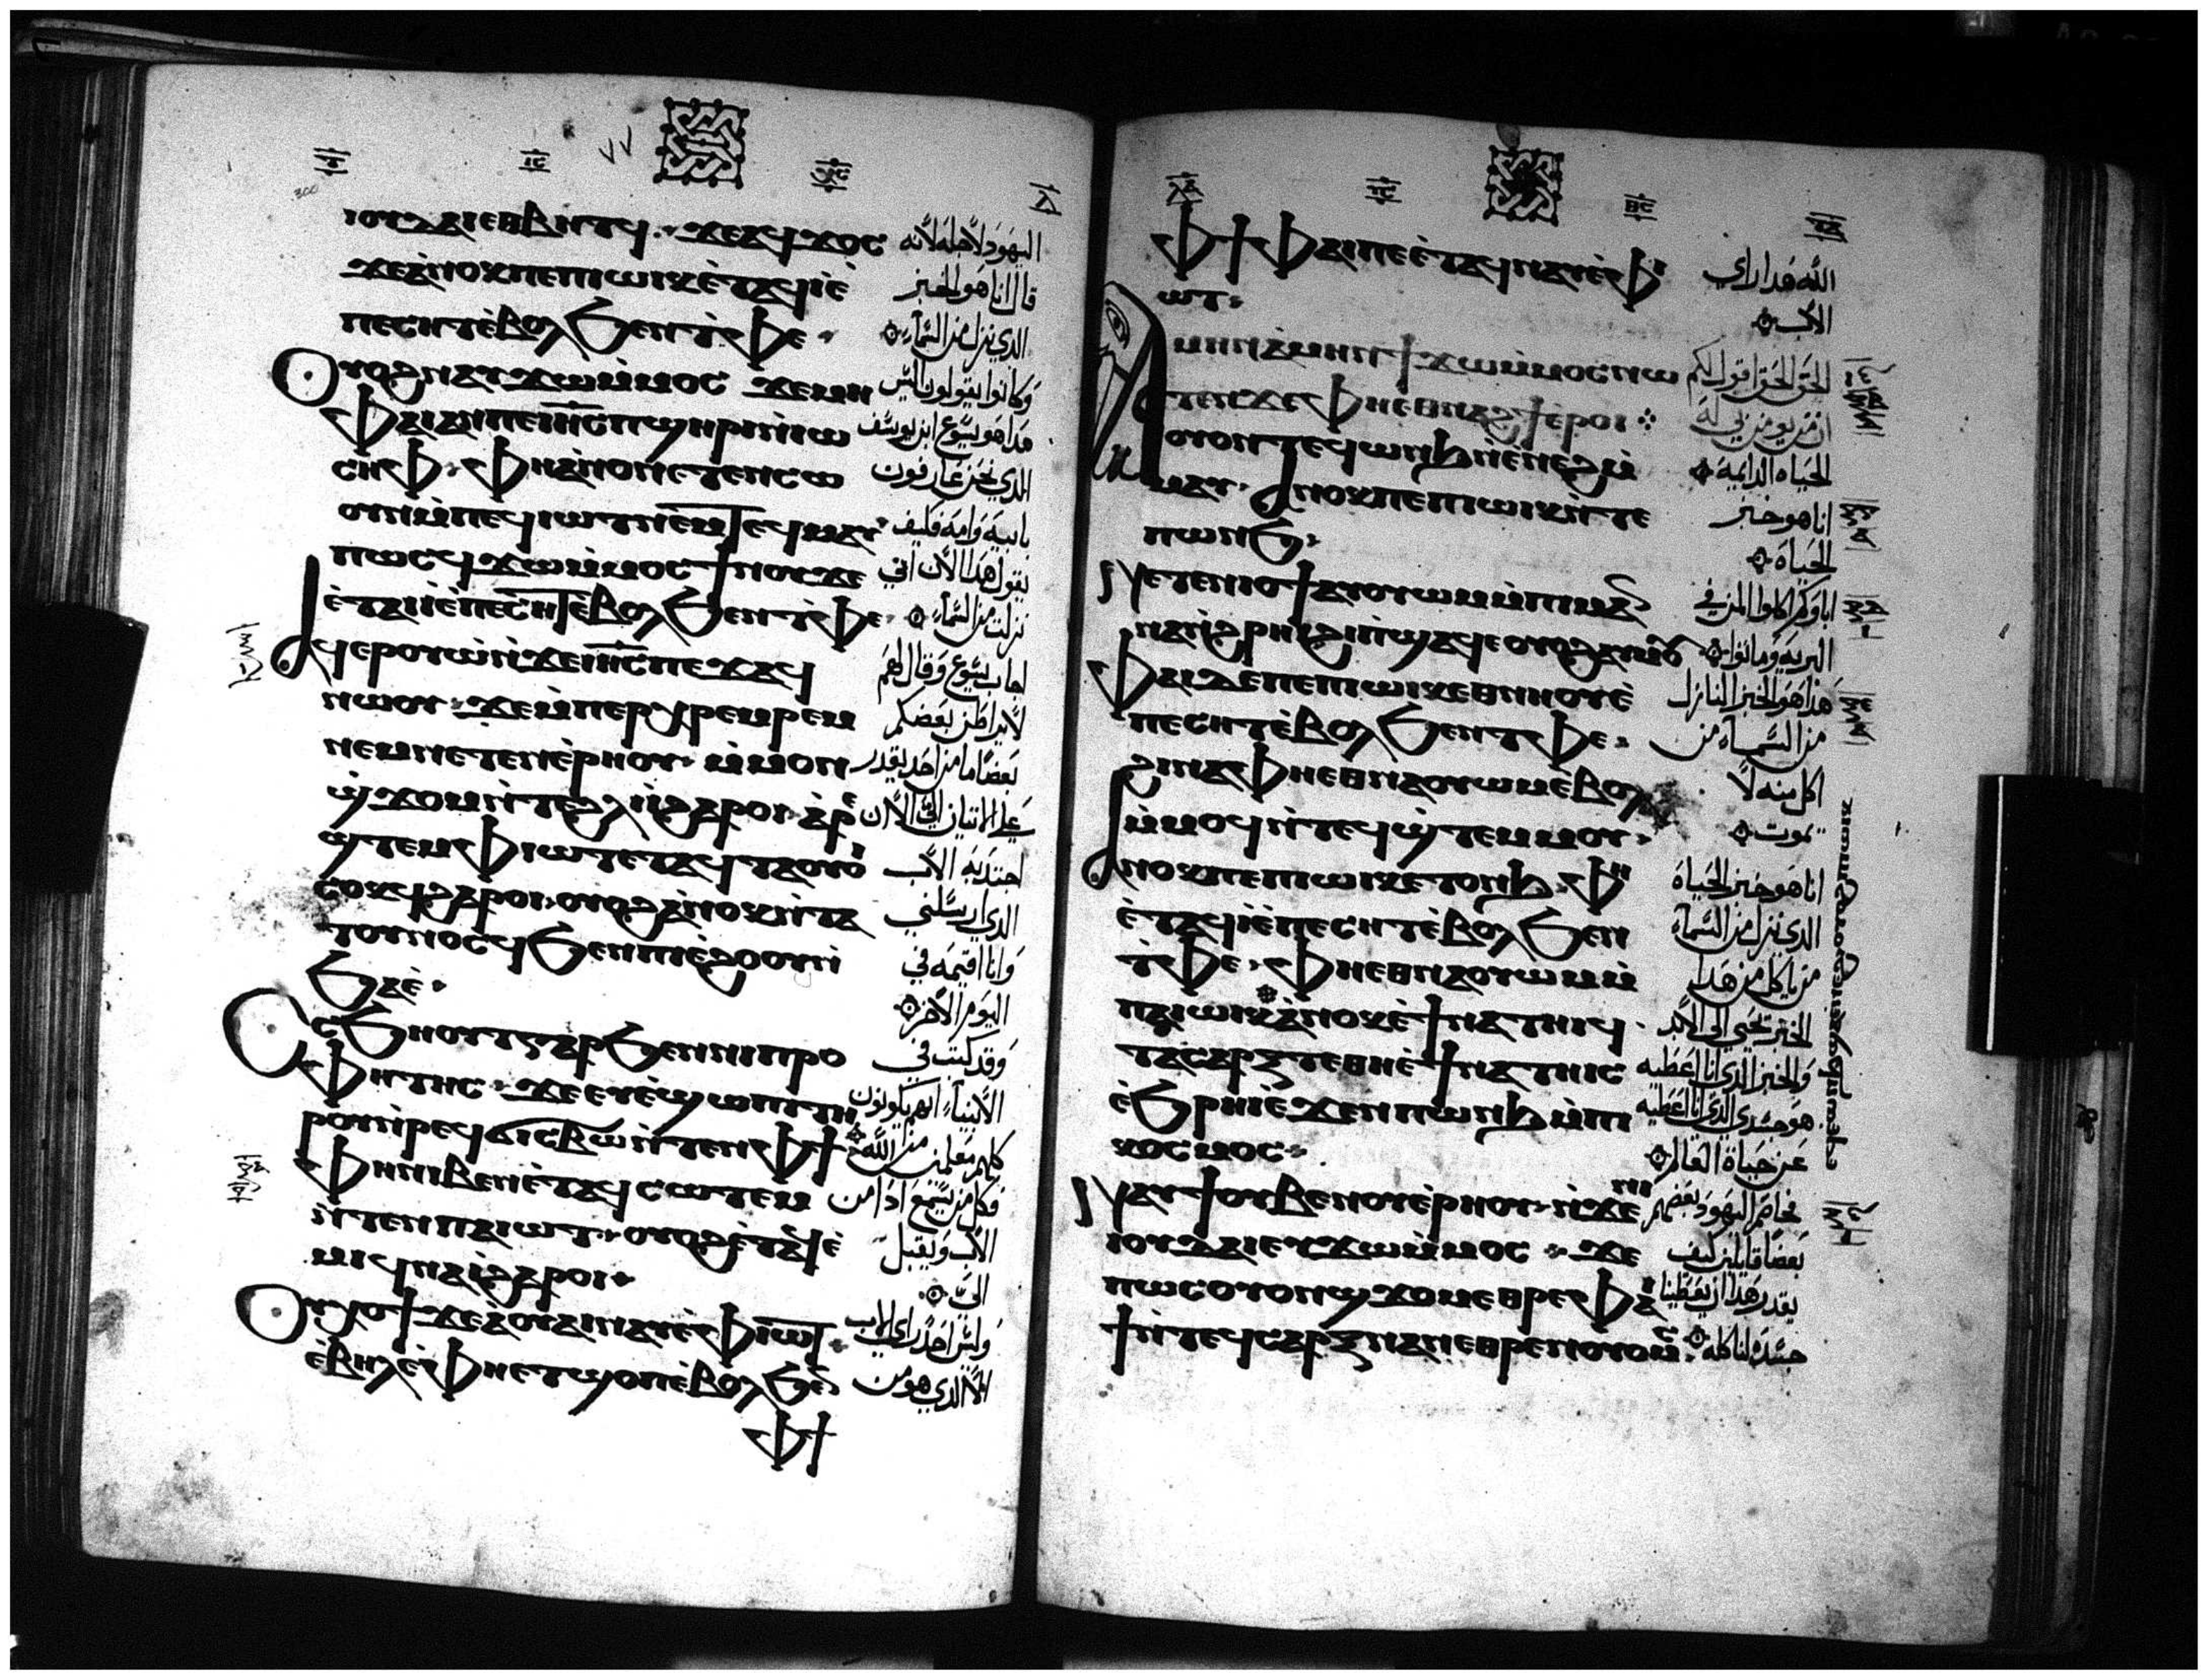 ⲓⲟⲩⲇⲁⲓ ⲉⲑⲃⲏⲧϥ ϫⲉ ⲁϥϫⲟⲥ
ϫⲉ ⲁⲛⲟⲕ ⲡⲉ ⲡⲓⲱⲓⲕ ⲉⲧⲁϥⲓ ⲉ
ⲡⲉⲥⲏⲧ ⲉⲃⲟⲗ ϧⲉⲛ ⲧⲫⲉ
ⲟⲩⲟϩ ⲛⲁⲩϫⲱ ⲙⲙⲟⲥ ϫⲉ ⲙⲏ
ⲫⲁⲓ ⲁⲛ ⲡⲉ ⲓⲏⲥ ⲡϣⲏⲣⲓ ⲛⲓⲱ
ⲥⲏⲫ ⲫⲏ ⲁⲛⲟⲛ ⲉⲧⲉⲛⲥⲱ
ⲟⲩⲛ ⲙⲡⲉϥⲓⲱⲧ ⲛⲉⲙ ⲧⲉϥⲙⲁⲩ
ⲡⲱⲥ ϥϫⲱ ⲙⲙⲟⲥ ϯⲛⲟⲩ ϫⲉ
ⲉⲧⲁⲓⲓ ⲉⲡⲉⲥⲏⲧ ⲉⲃⲟⲗ ϧⲉⲛ ⲧⲫⲉ
ⲁϥⲉⲣⲟⲩⲱ ⲛϫⲉ ⲓⲏⲥ ⲡⲉϫⲁϥ
ⲛⲱⲟⲩ ϫⲉ ⲙⲡⲉⲣⲭⲣⲉⲙⲣⲉⲙ
ⲛⲉⲙ ⲛⲉⲧⲉⲛⲉⲣⲏⲟⲩ ⲙⲙⲟⲛ
ϣϫⲟⲙ ⲛⲧⲉ ϩⲗⲓ ⲓ ϩⲁⲣⲟⲓ ⲁⲣⲉ
ϣⲧⲉⲙ ⲫⲓⲱⲧ ⲉⲧⲁϥⲧⲁⲟⲩⲟ
ⲥⲟⲕϥ ϩⲁⲣⲟⲓ ⲟⲩⲟϩ ⲁⲛⲟⲕ ⲛⲧⲁ
ⲧⲟⲩⲛⲟⲥϥ ϧⲉⲛ ⲡⲓⲉϩⲟⲟⲩ ⲛ
ϧⲁⲉ
ⲥⲥϧⲏⲟⲩⲧ ⲅⲁⲣ ϧⲉⲛ ⲛⲓⲡⲣⲟ
ⲫⲏⲧⲏⲥ ϫⲉ ⲉⲩⲉϣⲱⲡⲓ ⲧⲏ
ⲣⲟⲩ ⲛⲣⲉϥϭⲓⲥⲃⲱ ⲛⲧⲉⲛ ⲫϯ
ⲫⲏ ⲛⲓⲃⲉⲛ ⲉⲧⲁϥⲥⲱⲧⲉⲙ
ⲛⲧⲉⲛ ⲡⲁⲓⲱⲧ ⲟⲩⲟϩ ⲉⲧⲁϥⲉ
ⲙⲓ ϥⲛⲁⲓ ϩⲁⲣⲟⲓ
ⲟⲩⲭ ⲟⲧⲓ ϫⲉ ⲁ ⲟⲩⲁⲓ ⲛⲁⲩ ⲉⲫⲓⲱⲧ
ⲉⲃⲏⲗ ⲉⲫⲏ ⲉⲧϣⲟⲡ ⲉⲃⲟⲗ ϧⲉⲛ
ⲫϯ
اليهود لاجله لانه
قال انا هو الخبز
الذي نزل من السماء
وكانوا يقولون اليس
هذا هو يسوع ابن يوسف
الذي نحن عارفون
بابيه وامه فكيف
يقول هذا الان اني
نزلت من السماء
اجاب يسوع وقال لهم
لا يراطن بعضكم
بعضا ما من احد يقدر
على الاتيان الي الا ان
اجتذبه الاب
الذي ارسلني
وانا اقيمه في
اليوم الاخر
وقد كتب في
الانبياء انهم يكونون
كلهم متعلمين من الله
فكل من يسمع اذا من
الاب ويقبل
الي
وليس احد راى الاب
الا الذي هو من
ⲫϯ ⲫⲁⲓ ⲡⲉ ⲉⲧⲁϥⲛⲁⲩ ⲉⲫⲓ
ⲱⲧ
ⲁⲙⲏⲛ ⲁⲙⲏⲛ ϯϫⲱ ⲙⲙⲟⲥ ⲛⲱ
ⲧⲉⲛ ϫⲉ ⲫⲏ ⲉⲑⲛⲁϩϯ ⲉⲣⲟⲓ
ⲟⲩⲟⲛⲧⲉϥ ⲱⲛϧ ⲛⲉⲛⲉϩ ⲙ
ⲙⲁⲩ ⲁⲛⲟⲕ ⲡⲉ ⲡⲓⲱⲓⲕ ⲛⲧⲉ
ⲡⲱⲛϧ
ⲛⲉⲧⲉⲛⲓⲟϯ ⲁⲩⲟⲩⲱⲙ ⲙⲡⲓⲙⲁⲛ
ⲛⲁ ⲛϩⲣⲏⲓ ϩⲓ ⲡϣⲁϥⲉ ⲟⲩⲟϩ ⲁⲩⲙⲟⲩ
ⲫⲁⲓ ⲇⲉ ⲡⲉ ⲡⲓⲱⲓⲕ ⲉⲑⲛⲏⲟⲩ ⲉ
ⲡⲉⲥⲏⲧ ⲉⲃⲟⲗ ϧⲉⲛ ⲧⲫⲉ
ϩⲓⲛⲁ ⲫⲏ ⲉⲑⲛⲁⲟⲩⲱⲙ ⲉⲃⲟⲗ
ⲙⲙⲟϥ ⲛⲧⲉϥϣⲧⲉⲙⲙⲟⲩ
ⲁⲛⲟⲕ ⲡⲉ ⲡⲓⲱⲓⲕ ⲉⲧⲟⲛϧ ⲫⲏ
ⲉⲧⲁϥⲓ ⲉⲡⲉⲥⲏⲧ ⲉⲃⲟⲗ ϧⲉⲛ
ⲧⲫⲉ ⲫⲏ ⲉⲑⲛⲁⲟⲩⲱⲙ ⲙ
ⲡⲁⲓⲱⲓⲕ ⲁⲛⲟⲕ ⲉϯⲛⲁⲧⲏⲓϥ
ⲧⲁⲥⲁⲣⲝ ⲧⲉ ⲑⲏ ⲉϯⲛⲁⲧⲏⲓⲥ
ⲉϧⲣⲏⲓ ⲉϫⲉⲛ ⲡⲱⲛϧ ⲙⲡⲓ
ⲕⲟⲥⲙⲟⲥ
ⲛⲁⲩϯ ⲟⲩⲃⲉ ⲛⲟⲩⲉⲣⲏⲟⲩ ⲛϫⲉ ⲛⲓ
ⲓⲟⲩⲇⲁⲓ ⲉⲩϫⲱ ⲙⲙⲟⲥ ϫⲉ
ⲡⲱⲥ ⲟⲩⲟⲛ ϣϫⲟⲙ ⲉⲑⲣⲉ ⲫⲁⲓ
ϯ ⲛⲧⲉϥⲥⲁⲣⲝ ⲛⲁⲛ ⲉⲑⲣⲉⲛⲟⲩⲟⲙⲥ
الله هذا راى
الاب
الحق الحق اقول لكم
ان من يومن بي له
الحياه الدايمة
انا هو خبز
الحياة
اباوكم اكلوا المن في
البرية وماتوا
هذا هو الخبز النازل
من السماء من
اكل منه لا
يموت
انا هو خبز الحياة
الذي نزل من السماء
من ياكل من هذا
الخبز يحيى الى الابد
والخبز الذي انا اعطيه
هو جسدي الذي انا اعطيه
عن حياة العالم
فخاصم اليهود بعضهم
بعضا قايلين كيف
يقدر هذا ان يعطينا
جسده لناكله